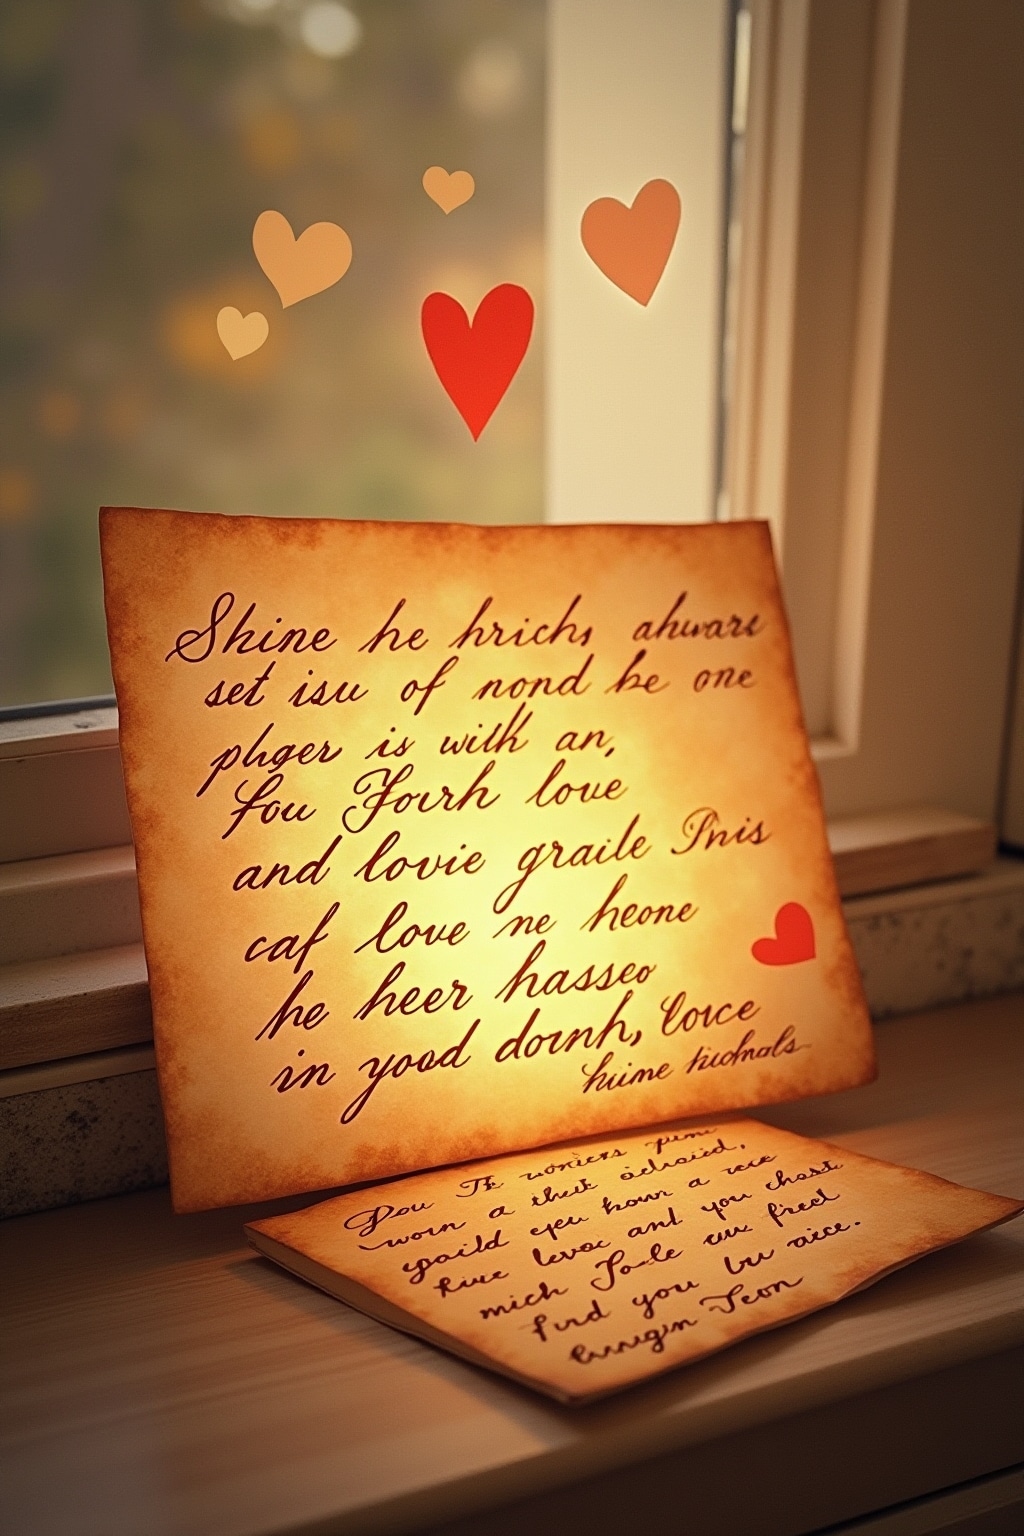 Shine he hrichs ahware
set isu of nond be one
phger is with an,
fou Fourh love
and lovie graile Pnis
caf love ne heone
he heer hasseo
in yood dornh, lorce
huime
Dou Th worices
worn a thet
gaild eyeu hown a rece
hive levoc and you chast
mich Jo-le euu freed
find you bu aice.
Teon